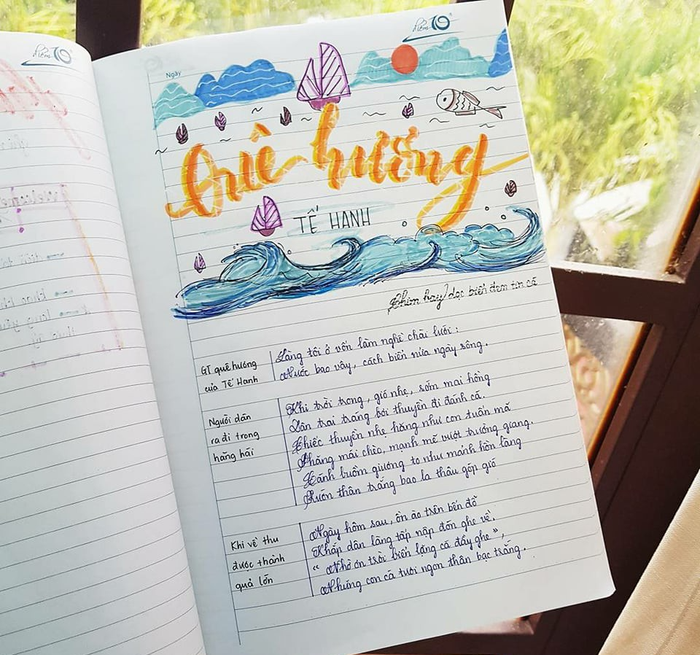 Ngày
Quê hương
TẾ HANH
Chim bay dọc biển đem tin cá
GT quê hương
của Tế Hanh
Làng tôi ở vốn làm nghề chài lưới:
Nước bao vây, cách biển nửa ngày sông.
Người dân
ra đi trong
hăng hái
Khi trời trong, gió nhẹ, sớm mai hồng
Dân trai tráng bơi thuyền đi đánh cá.
Chiếc thuyền nhẹ hăng như con tuấn mã
Phăng mái chèo, mạnh mẽ vượt trường giang.
Cánh buồm giương to như mảnh hồn làng
Rướn thân trắng bao la thâu góp gió
Khi về thu
được thành
quả lớn
Ngày hôm sau, ồn ào trên bến đỗ
Khắp dân làng tấp nập đón ghe về.
" Nhờ ơn trời biển lặng cá đầy ghe",
Những con cá tươi ngon thân bạc trắng.